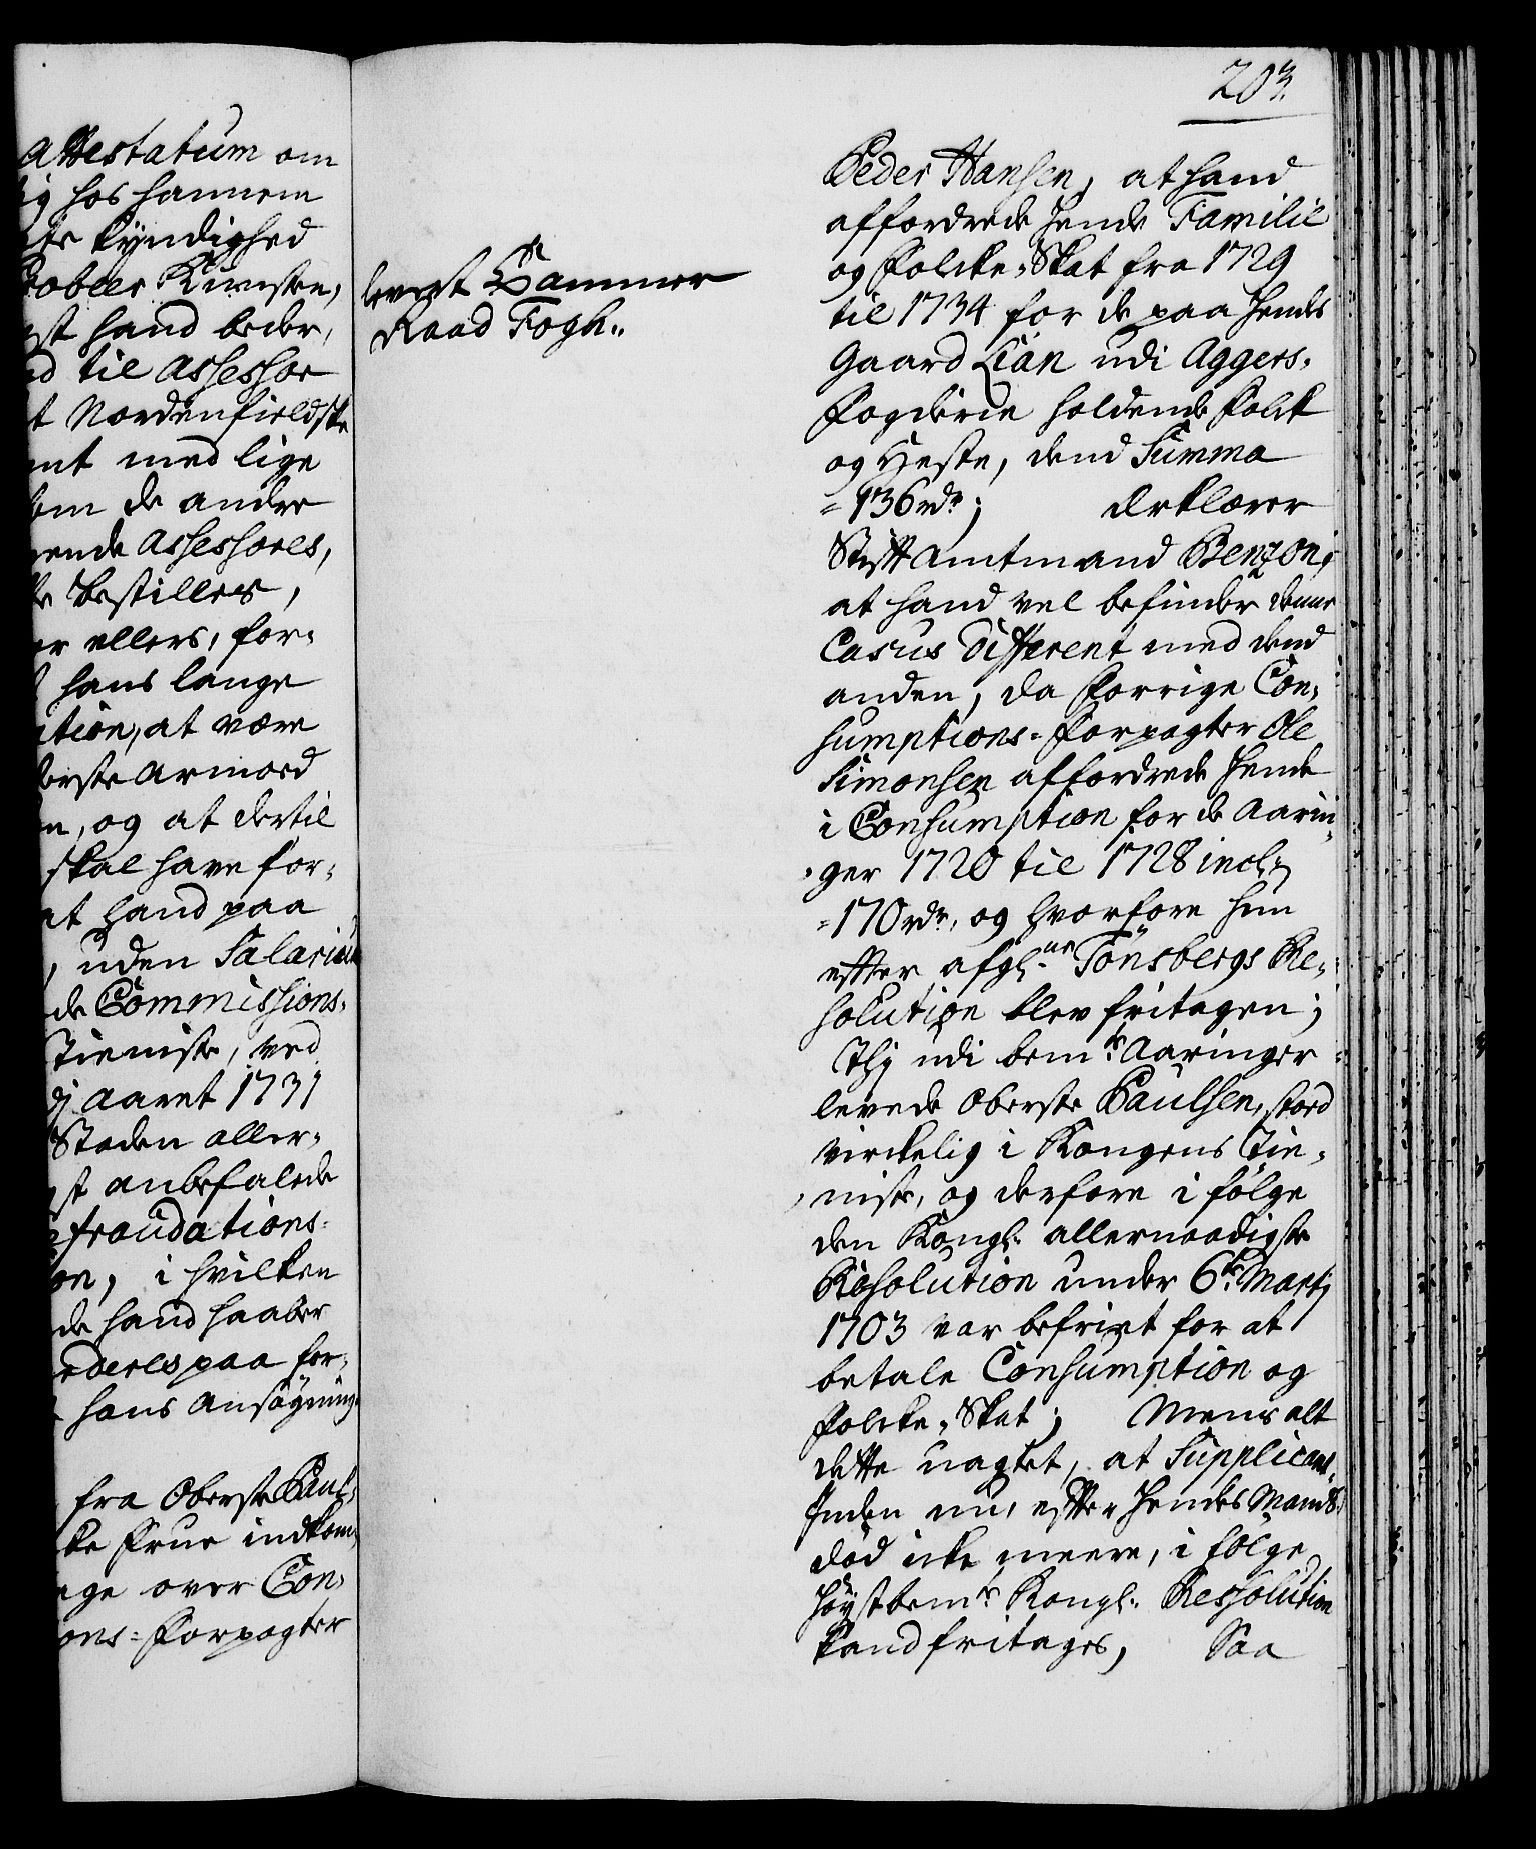 203.
Attestatum om
hos hannem
kyndighed
Kunster,
hand beder,
til Assessor
Nordenfieldske
med lige
de andre
Assessores,
bestilles,
ellers, for-
hans lange
at være
Armoed
og at dertil
skal have for-
hand paa
uden Salarium
de Commissions-
Tieniste, ved
Aaret 1731
Staden aller-
anbefalede
i hvilken
de hand haaber
paa for-
hans Ansøgning.
fra Oberste Paul-
ke Frue indkom-
over Con-
Forpagter
leveret Cammer
Raad Fogh..
Peder Hansen, at hand
affordrede hende Familie
og Folcke-Skat fra 1729
til 1734 for de paa hendes
Gaard Lian udi Aggers-
Fogderie holdende Folck
og Heste, dend Summa
=136 rdr; Erklærer
Stift Amtmand Benzon,
at hand vel befinder denne
Casus Different med dend
anden, da forrige Con-
sumptions-Forpagter Ole
Simonsen affordrede hende
i Consumption for de Aarin-
ger 1720 til 1728 incl:
=170 rdr, og hvorfore hun
efter afgl.ne Tönsbergs Re-
solution blev fritagen;
Thj udi bem.te Aaringer
levede Oberste Paulsen, stoed
virckelig i Kongens Tie-
niste, og derfore i følge
den Kongl. allernaadigste
Resolution under 6te Martj
1703 var befriet for at
betale Consumption og
Folcke-Skat; Mens alt
dette uagtet, at Supplicant-
Inden nu, efter hendes Mands
død icke meere, i følge
høystbem.te Kongl. Resolution
kand fritages, Saa